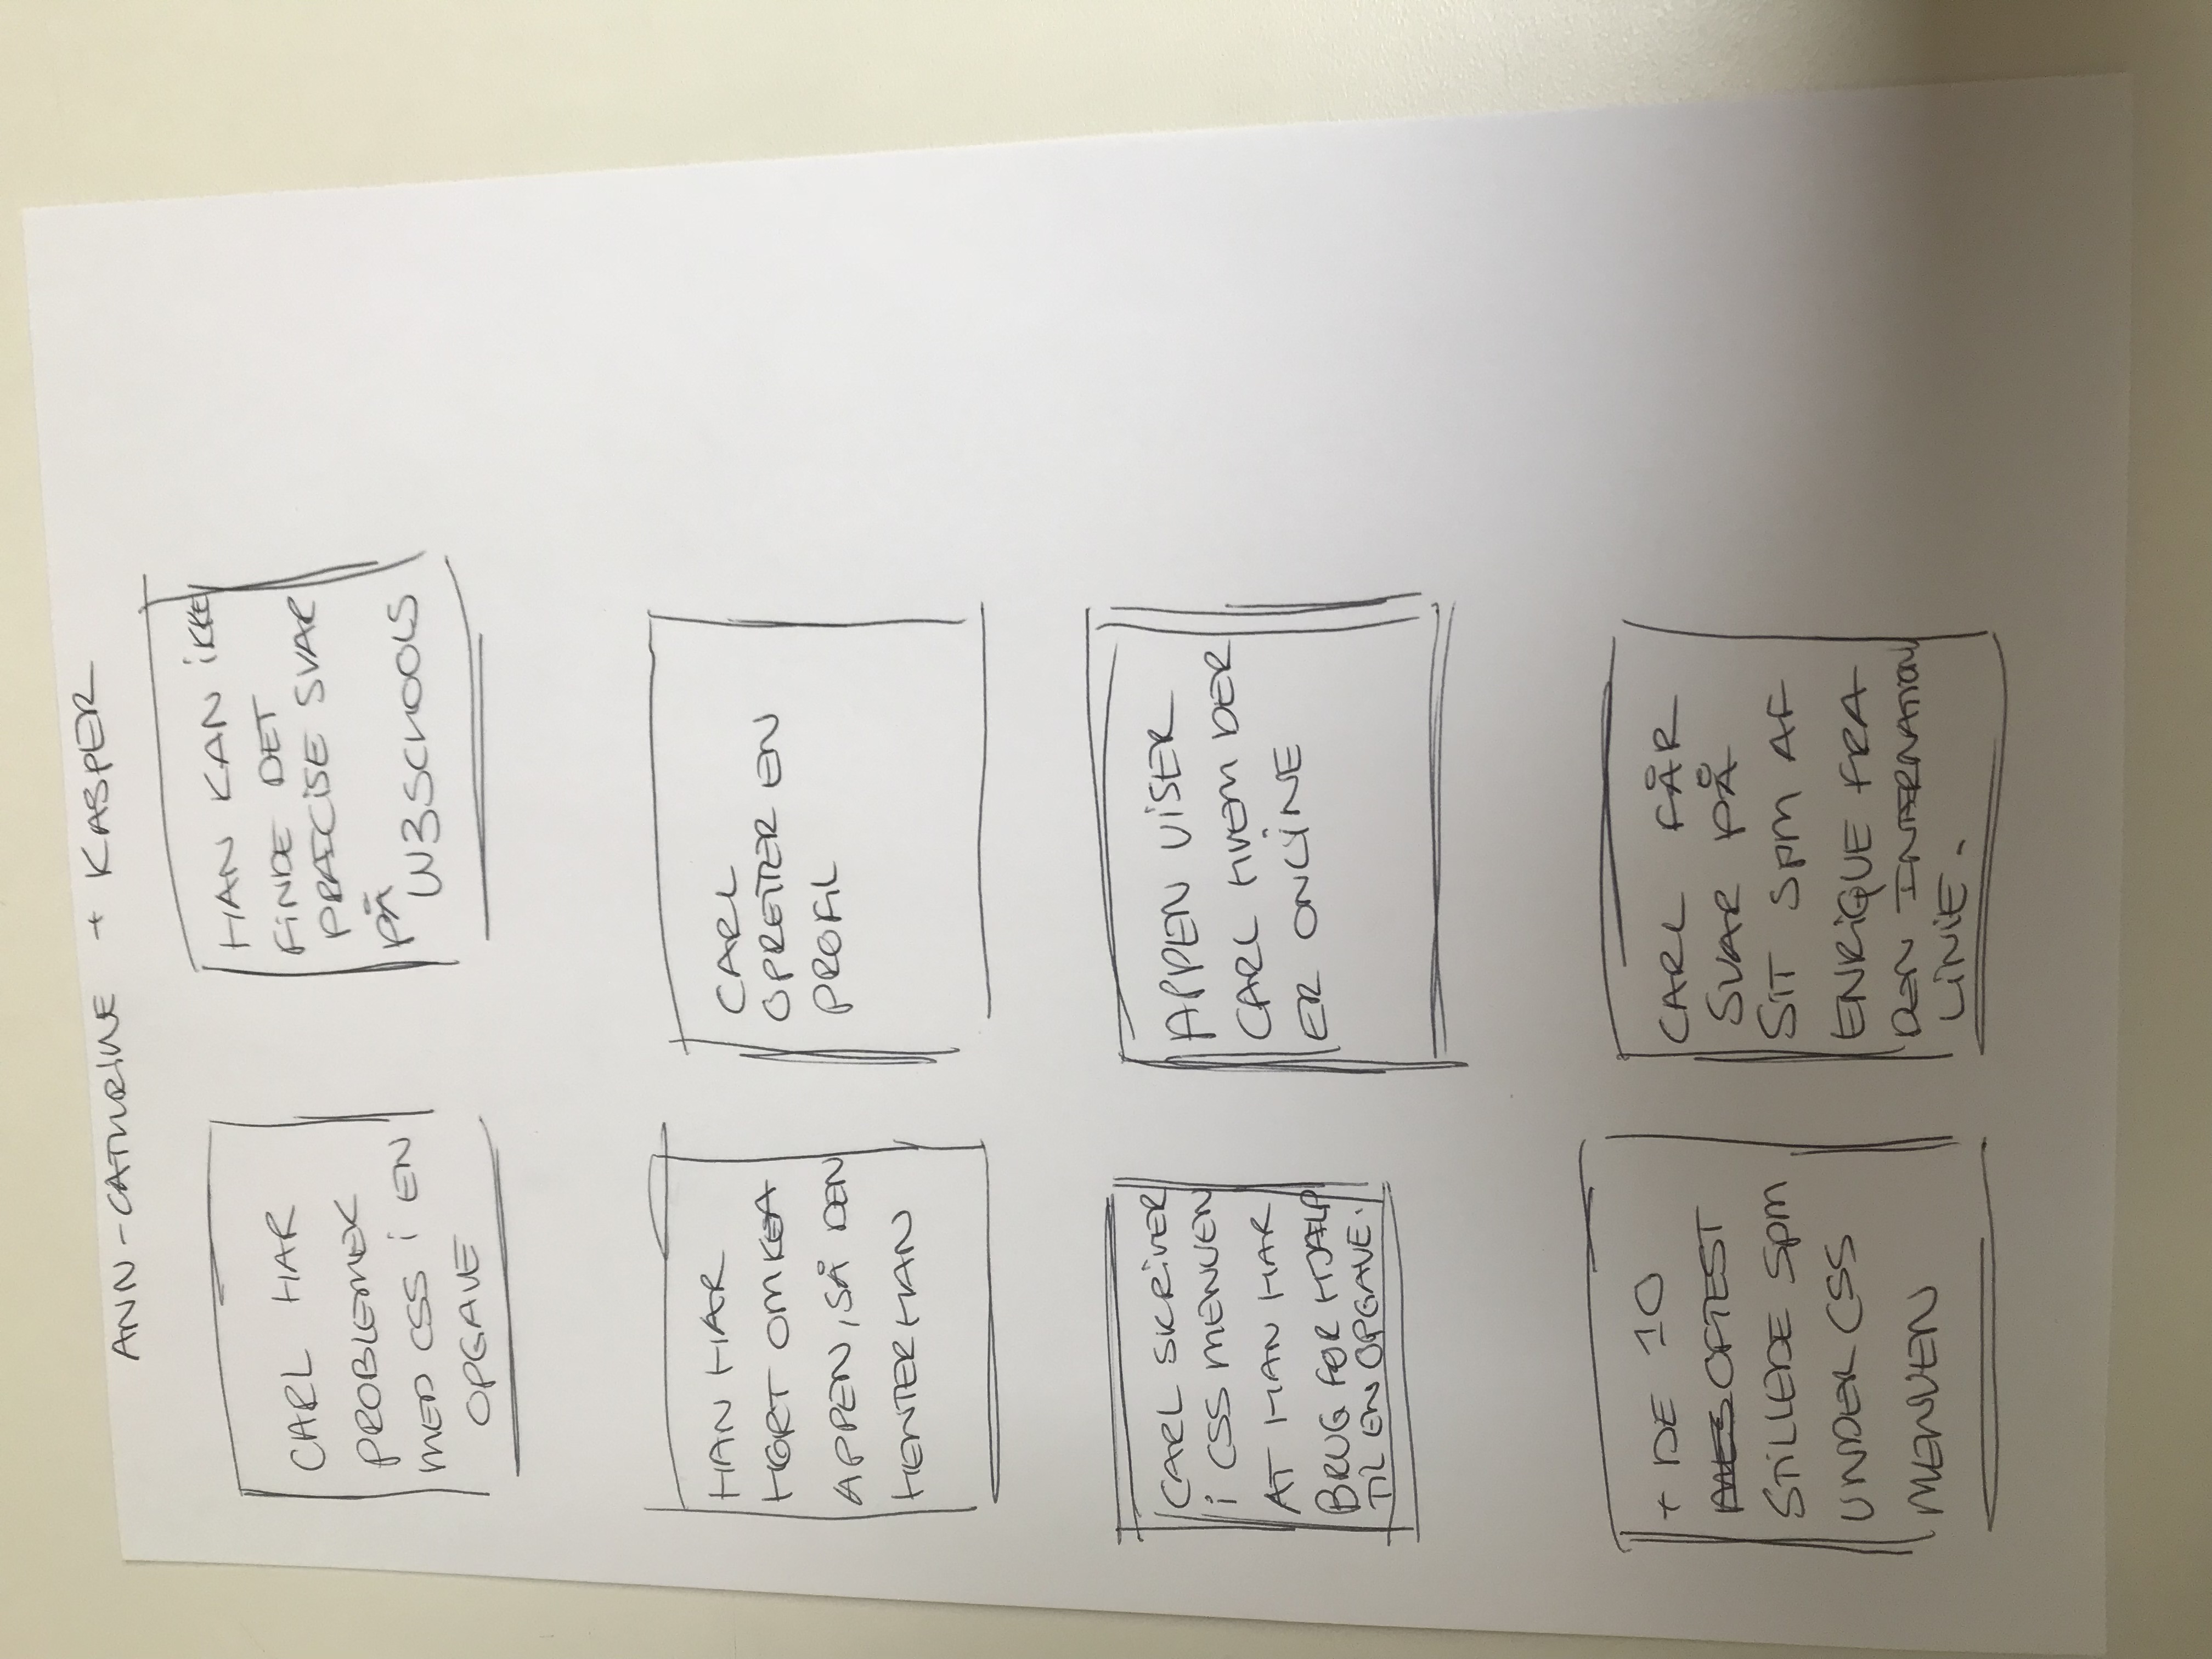 ANN-CATHRINE + KASPER
CARL HAR
PROBLEMER
MED CSS i EN
OPGAVE
HAN KAN iKKE
FiNDE DET
PRÆCiSE SVAR
PÅ
W3SCHOOLS
HAN HAR
HØRT OM KEA
APPEN, SÅ DEN
HENTER HAN
CARL
OPRETTER EN
PROFiL
CARL SKRiVER
i CSS MENUEN
AT HAN HAR
BRUG FOR HJÆLP
TIL EN OPGAVE.
APPEN ViSER
CARL HVEM DER
ER ONLiNE
+ DE 10
MES OFTEST
STiLLEDE SPM
UNDER CSS
MENUEN
CARL FÅR
SVAR PÅ
SIT SPM AF
ENRiQUE FRA
DEN INTERNATION
LiNiE.